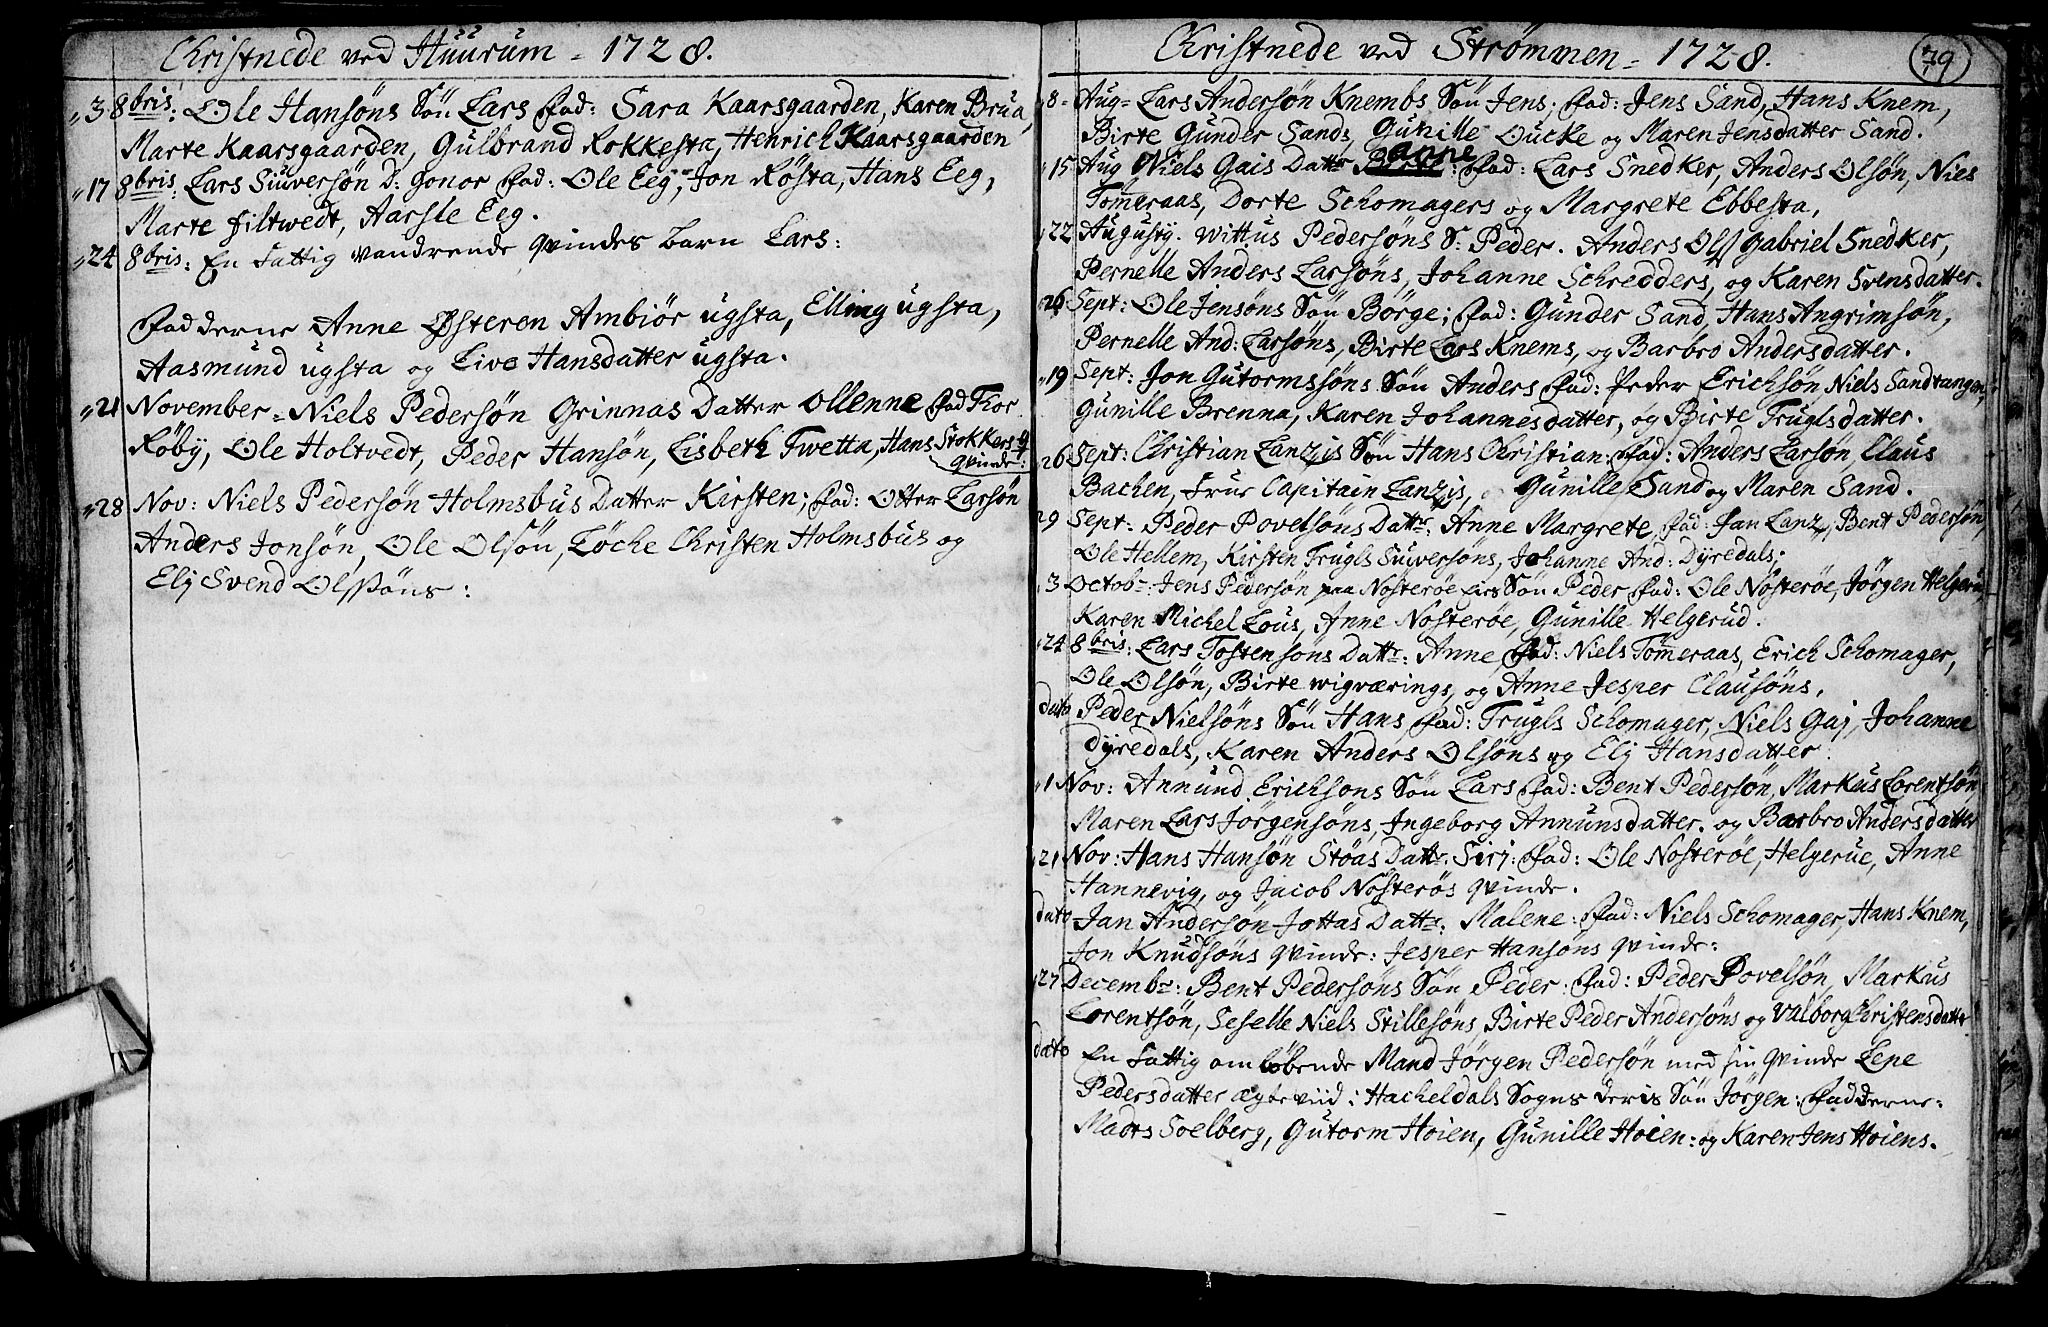 Christnede ved Huurum - 1728.
„3 8bris: Ole Hansøns Søn Lars Fad: Sara Kaarsgaarden, Karen Brua,
Marte Kaarsgaarden, Gulbrand Rokkesta, Henrich Kaarsgaarden
„17 8bris: Lars Siuversøn D: Gonor Fad: Ole Eeg, Jon Røsta, Hans Eeg,
Marte Filtwedt, Aarsle Eeg.
„24 8bris: En Fattig vandrende qvindes barn Lars:
Fadderne Anne Østeren Ambiør ugsta, Elling ugsta,
Aasmund ugsta og Live Hansdatter ugsta.
„21 November - Niels Pedersøn Grinnas Datter Ollenne Fad Thor
Røby, Ole Holtvedt, Peder Hansøn, Lisbeth Twetta, Hans Stokkers
qvinde:
„28 Nov: Niels Pedersøn Holmsbus Datter Kirsten; Fad: Otter Larsøn
Anders Jonsøn, Ole Olsøn, Løcke Christen Holmsbus og
Elj Svend Olssøns:
Christnede ved Strømmen - 1728.
79
„8 - Aug - Lars Andersøn Knembs Søn Jens; Fad: Jens Sand, Hans Knem,
Birte Gunder Sands, Gunille Oucke og Maren Jensdatter Sand.
„15 Aug Niels Gais Dattr Anne: Fad: Lars Snedker, Anders Olsøn, Niels
Tømeraas, Dorte Schomagers og Margrete Ebbesta,
„22 Augusty. Wittus Pedersøns S: Peder. Anders Ols Gabriel Snedker,
Pernelle Anders Larsøns, Johanne Schredders, og Karen Svensdatter.
„26 Sept: Ole Jensøns Søn Børge; Fad: Gunder Sand, Hans Angrimsøn,
Pernelle And: Larsøns, Birte Lars Knems, og Barbro Andersdatter.
„19 Sept: Jon Gutormssøns Søn Anders Fad: Peder Erichsøn Niels Sandtangen,
Gunille Brenna, Karen Johannesdatter, og Birte Truglsdatter.
26 Sept: Christian Lanzis Søn Hans Christian: Fad: Anders Larsøn Claus
Bachen, Frue Capitain Lanzis, Gunille Sand og Maren Sand.
29 Sept: Peder Povelsøns Dattr: Anne Margrete, Fad: Jan Lanz, Bent Pedersøn,
Ole Hellem, Kirsten Trugls Siuversøns, Johanne And: Dyredals;
3 Octobr: Jens Pedersøn paa Nosterøe Søn Peder Fad: Ole Nosterøe, Jørgen Helgerud,
Karen Michel Lous, Anne Nosterøe, Gunille Helgerud.
„24 8bris: Lars Tostensøns Dattr: Anne, Fad: Niels Tømeraas, Erich Schomager,
Ole Olsøn, Birte wigværings, og Anne Jesper Clausøns,
dato Peder Nielsøns Søn Hans Fad: Trugls Schomager, Niels Gaj, Johanne
dyredals, Karen Anders Olsøns og Elj Hansdatter.
„1 Nov: Annund Erichsøns Søn Lars Fad: Bent Pedersøn, Markus Lorentsøn
Maren Lars Jørgensøns, Ingeborg Annunsdatter. og Barbro Andersdatter
„21 Nov: Hans Hansøn Støas Dattr: Sirj: Fad: Ole Nosterøe, Helgerue, Anne
Hannevig, og Jacob Nosterøs qvinde.
dato Jan Andersøn Jottas Dattr: Malene: Fad: Niels Schomager, Hans Knem,
Jon Knudsøns qvinde: Jesper Hansøns qvinde:
„27 Decembr: Bent Pedersøns Søn Peder: Fad: Peder Povelsøn, Markus
Lorentsøn, Seselle Niels Stillesøns Birte Peder Andersøns og Valborg Christensdatter
dato En Fattig omløbende Mand Jørgen Pedersøn med sin qvinde Lene
Pedersdatter ægteviid i Hacheldals Sogn deris Søn Jørgen: Fadderne:
Madts Soelberg, Gutorm Hoien, Gunille Hoien: og Karen Jens Hoiens.